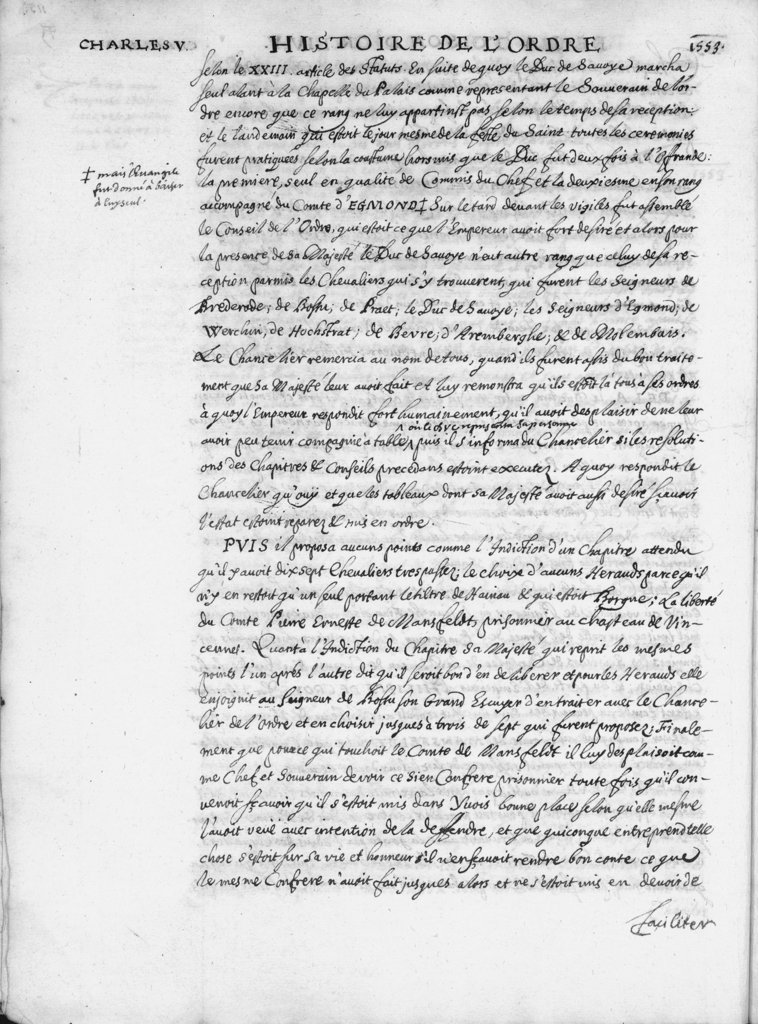 CHARLES V. HISTOIRE DE L'ORDRE 1553.
selon le XXIII. article des Statuts. En suite de quoy le Duc de Savoye marcha
seul alant à la Chapelle du Palais comme representant le Souverain de l'or-
dre encore que ce rang ne luy appartinst pas selon le temps de sa reception;
et le landemain qui estoit le jour mesme de la feste du Saint toutes les ceremonies
furent pratiquées selon la coustume hors mis que le Duc fut deux fois à l'offrande:
la premiere, seul en qualité de Commis du Chef et la deuxiesme en son rang
accompagné du Comte d'EGMOND ‡ Sur le tard devant les vigiles fut assemblé
‡ mais l'Euangile
fut donné à baiser
à luy seul.
le Conseil de l'Ordre, qui estoit ce que l'Empereur avoit fort desiré et alors pour
la presence de sa Majesté le Duc de Savoye n'eut autre rang que celuy de sa re-
ception parmis les Chevaliers qui s'y trouverent, qui furent les Seigneurs de
Brederode; de Bossu; de Praet; le Duc de Savoye; les Seigneurs d'Egmond; de
Werchin; de Hochstrat; de Bevre; d'Aremberghe; & de Molembais.
Le Chancelier remercia au nom de tous, quand ils furent assis du bon traite-
ment que sa Majesté leur avoit fait et luy remonstra qu'ils estoit là tous à ses ordres
à quoy l'Empereur respondit fort humainement, qu'il avoit desplaisir de ne leur
avoir peu tenir compagnie à table ^ où le duc representa sa personne puis il s'informa du Chancelier si les resoluti-
ons des Chapitres & Conseils precedans estoint executez. A quoy respondit le
Chancelier qu'ouy et que les tableaux dont sa Majesté avoit aussi desiré scavoir
l'estat estoint reparez & mis en ordre.
PVIS il proposa aucuns points comme l'Indiction d'un Chapitre attendu
qu'il y avoit dix sept Chevaliers trespassez; le choix d'aucuns Herauds parce qu'il
n'y en restoit qu'un seul portant le tiltre de Hainau & qui estoit Borgne; La liberté
du Comte Pierre Erneste de Mansfeldt prisonnier au chasteau de Vin-
cennes. Quant à l'Indiction du Chapitre sa Majesté qui reprit les mesmes
points l'un aprés l'autre dit qu'il seroit bon d'en deliberer et pour les Herauds elle
enjoignit au Seigneur de Bossu son Grand Escuyer d'en traiter avec le Chance-
lier de l'Ordre et en choisir jusques à trois de sept qui furent proposez; Finale-
ment que pource qui touchoit le Comte de Mansfeldt il luy desplaisoit com-
me Chef et Souverain de voir ce sien Confrere prisonnier toute fois qu'il con-
venoit sçavoir qu'il s'estoit mis dans Yuois bonne place selon qu'elle mesme
l'avoit veüe avec intention de la deffendre, et que quiconque entreprend telle
chose s'estoit sur sa vie et honneur s'il n'en sçavoit rendre bon conte ce que
le mesme Confrere n'avoit fait jusques alors et ne s'estoit mis en devoir de
faciliter